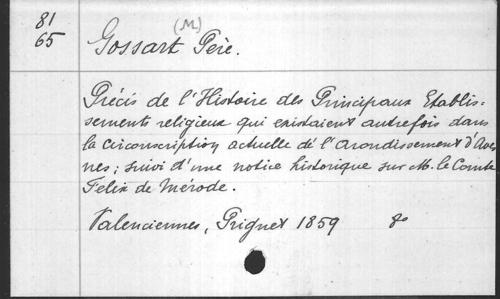 81
65
Gossart (M) Père.
Précis de l'Histoire des Principaux Etablis-
sements religieux qui existaient autrefois dans
la circonscription actuelle de l'arondissement d'Aves-
nes; suivi d'une notice historique sur M. le Comte
Felix de Mérode.
Valenciennes, Prignet 1859 8º